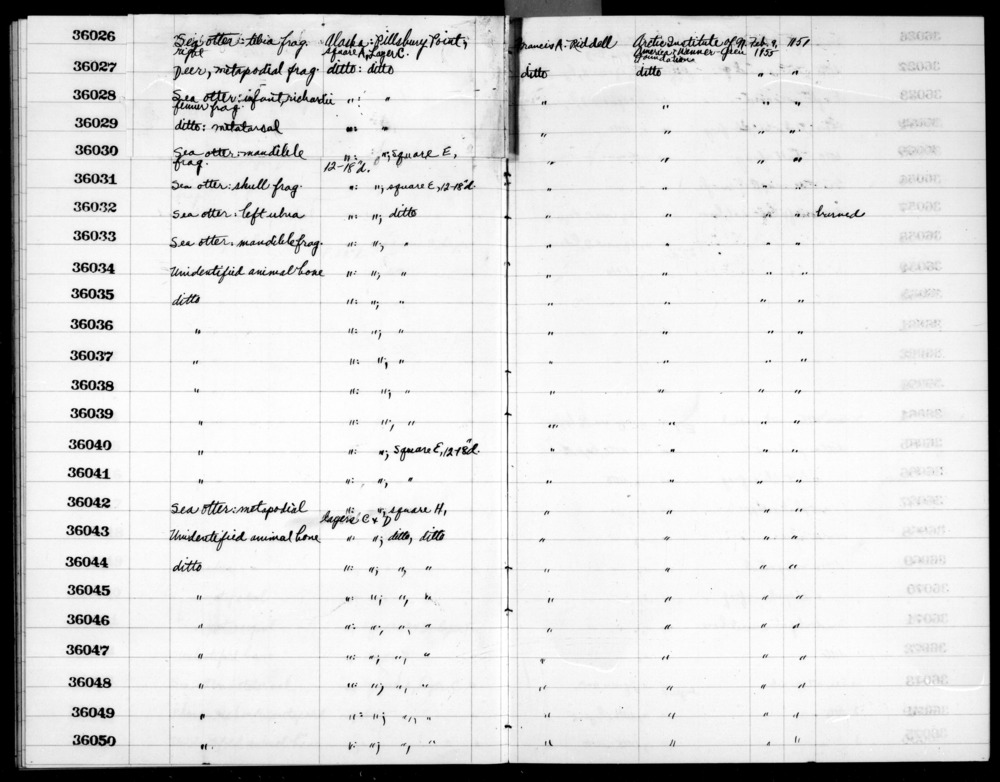 36026 Sea otter: tibia frag. Alaska: Pillsbury Point, Francis A. Riddell Arctic Institute of N. Feb. 9, 1151
right square A, Layer C. America: Wenner-Gren 1955
foundations
36027 Deer, metapodial frag. ditto: ditto ditto ditto " "
36028 Sea otter: infant, " : " " " " "
femur frag.
36029 ditto: metatarsal " : " " " " "
36030 Sea otter: mandible " : "; square E, " " " "
frag. 12-18"d.
36031 Sea otter: skull frag. " : "; square E, 12-18"d. " " " "
36032 Sea otter: left ulna " : "; ditto " " " " burned
36033 Sea otter: mandible frag. " : "; " " " " "
36034 Unidentified animal bone " : "; " " " " "
36035 ditto " : "; " " " " "
36036 " " : "; " " " " "
36037 " " : "; " " " " "
36038 " " : "; " " " " "
36039 " " : ", " " " " "
36040 " " : "; square E, 12-18"d. " " " "
36041 " " : ", " " " " "
36042 Sea otter: metapodial " : ", square H, " " " "
Layers C & D
36043 Unidentified animal bone " "; ditto, ditto " " " "
36044 ditto " : "; ", " " " " "
36045 " " : "; ", " " " " "
36046 " " : ", ", " " " " "
36047 " " : "; ", " " " " "
36048 " " : "; ", " " " " "
36049 " " : "; ", " " " " "
36050 " " : "; ", " " " " "